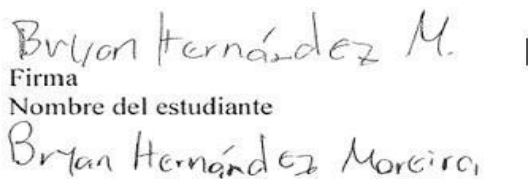 Bryan Hernández M.
Firma
Nombre del estudiante
Bryan Hernández Moreira